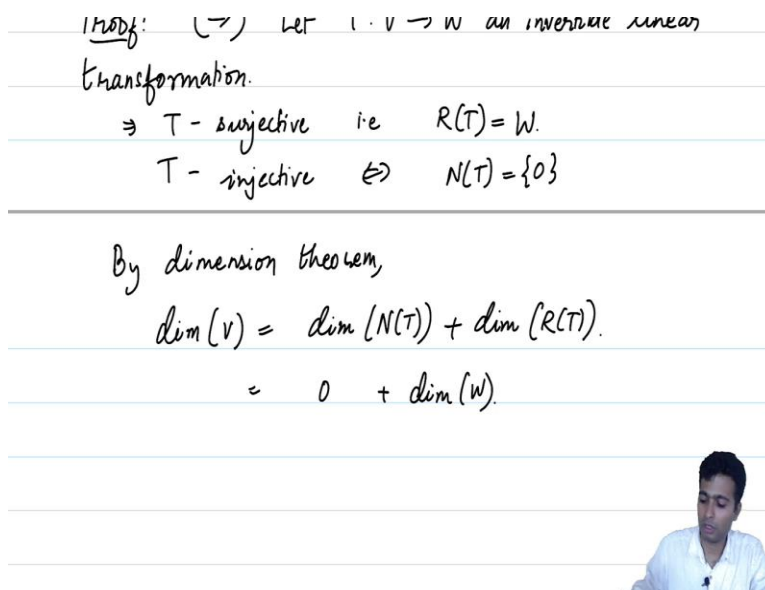 Proof: (⇒) Let T : V → W an invertible linear
transformation.
⇒ T - surjective i.e R(T) = W.
T - injective ⇔ N(T) = {0}
By dimension theorem,
dim (V) = dim (N(T)) + dim (R(T)).
= 0 + dim (W).